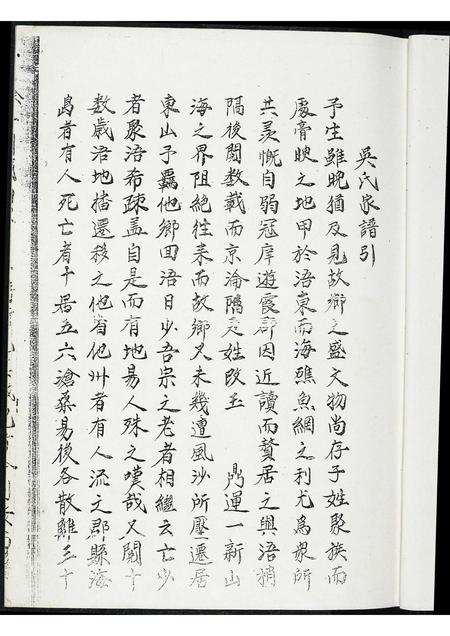 吳氏家譜引
予生雖晚猶及見故鄉之盛文物尚存子姓聚族而
處膏腴之地甲於浯東而海礁魚網之利尤為衆所
共羨慨自弱冠庠遊霞郡因近讀而贅居之與浯稍
隔後閱数載而京淪隅足姓改玉　鼎運一新山
海之界阻絶往来而故鄉又未幾遭風沙所壓遷居
東山予羈他鄉回浯日少吾宗之老者相繼云亡少
者聚浯希疎盖自是而有地易人殊之嘆哉又閱十
数歲浯地播遷移之他省他州者有人流之郡縣海
島者有人死亡者十居五六滄桑易後各散雖三十